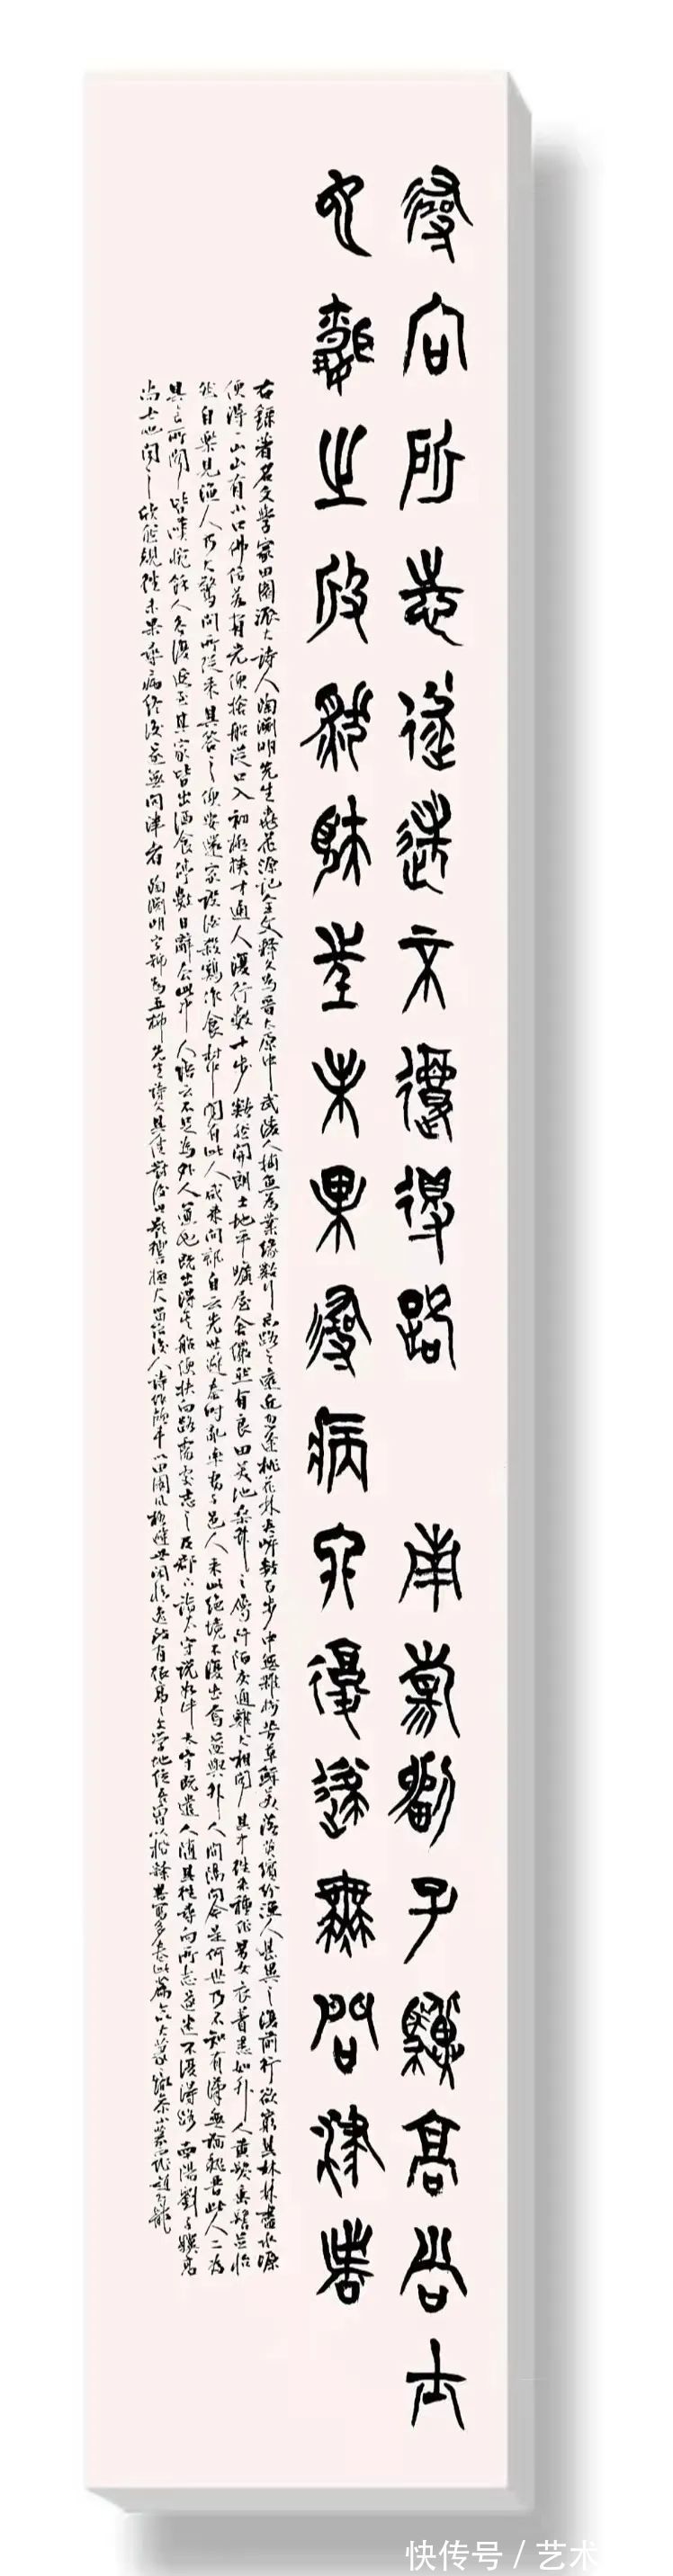 尋向所志遂迷不復得路 南陽劉子驥高尚士
也聞之欣然規往未果尋病終後遂無問津者
右錄著名文學家田園派大詩人陶淵明先生桃花源記全文釋文為晉太原中武陵人捕魚為業緣溪行忘路之遠近忽逢桃花林夾岸數百步中無雜樹芳草鮮美落英繽紛漁人甚異之復前行欲窮其林林盡水源
便得一山山有小口彿若有光便捨船從口入初極狹才通人復行數十步豁然開朗土地平曠屋舍儼然有良田美池桑竹之屬阡陌交通雞犬相聞其中往來種作男女衣著悉如外人黃髮垂髫並怡
然自樂見漁人乃大驚問所從來具答之便要還家設酒殺鷄作食村中聞有此人咸來問訊自云先世避秦時亂率妻子邑人來此絕境不復出焉遂與外人間隔問今是何世乃不知有漢無論魏晉此人一一為
具言所聞皆嘆惋餘人各復延至其家皆出酒食停數日辭去此中人語云不足為外人道也既出得其船便扶向路處處志之及郡下詣太守說如此太守既遣人隨其往尋向所志遂迷不復得路 南陽劉子驥高
尚士也聞之欣然規往未果尋病終後遂無問津者 陶淵明 五柳先生
快传号 / 艺术